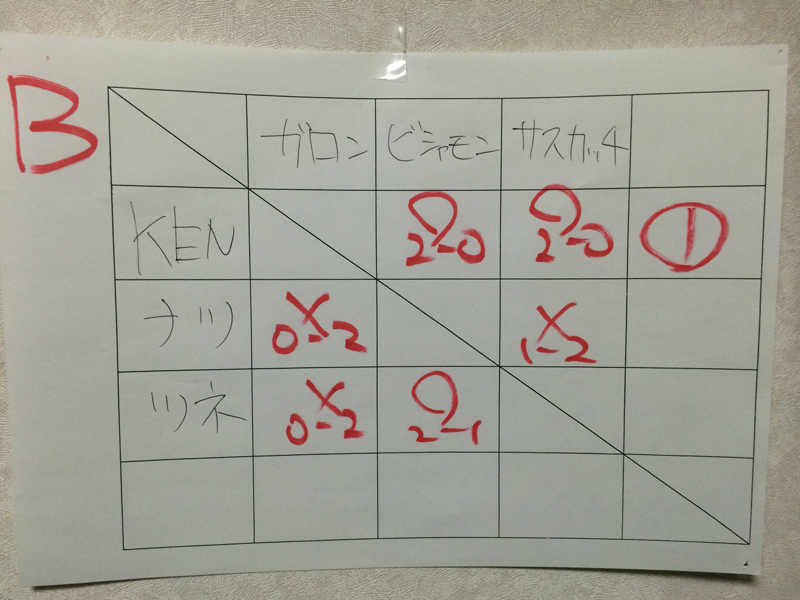 B
ガロン ビシャモン サスカッチ
KEN ○ 2-0 ○ 2-0 ①
ナツ × 0-2 × 1-2
ツネ × 0-2 ○ 2-1